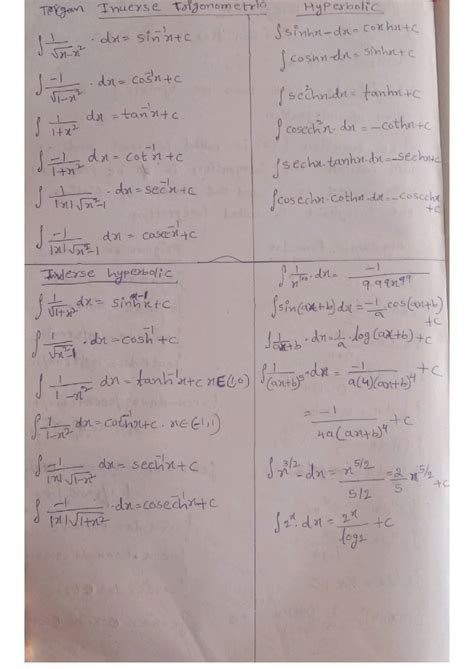 Inverse Trigonometric
∫ 1/√x-x² · dx = sin⁻¹x+c
∫ -1/√1-x² · dx = cos⁻¹x+c
∫ 1/1+x² dx = tan⁻¹x+c
∫ -1/1+x² dx = cot⁻¹x+c
∫ 1/|x|√x²-1 · dx = sec⁻¹x+c
∫ -1/|x|√x²-1 dx = cosec⁻¹x+c
Hyperbolic
∫sinhx-dx = coshx+c
∫coshx-dx = sinhx+c
∫sec²hx-dx = tanhx+c
∫cosech²x·dx = -cothx+c
∫sechx·tanhx·dx = -sechx+c
∫cosechx·cothx·dx = -cosechx
+c
Inverse hyperbolic
∫ 1/√1+x² dx = sinh⁻¹x+c
∫ 1/√x²-1 · dx = cosh⁻¹+c
∫ 1/1-x² dx = tanh⁻¹x+c x∈(1,0)
∫ 1/1-x² dx = coth⁻¹x+c · x∈(-1,1)
∫ -1/|x|√1-x² dx = sech⁻¹x+c
∫ -1/|x|√1+x² · dx = cosech⁻¹x+c
∫ 1/x¹⁰⁰ · dx = -1/99x⁹⁹
∫sin(ax+b)dx = -1/a cos(ax+b)
+c
∫ 1/ax+b · dx = 1/a · log(ax+b)+c
∫ 1/(ax+b)⁵ · dx = -1/a(4)(ax+b)⁴ +c
= -1/4a(ax+b)⁴ +c
∫x^3/2 - dx = x^5/2 / 5/2 = 2/5 x^5/2 +c
∫2ˣ · dx = 2ˣ/log2 +c